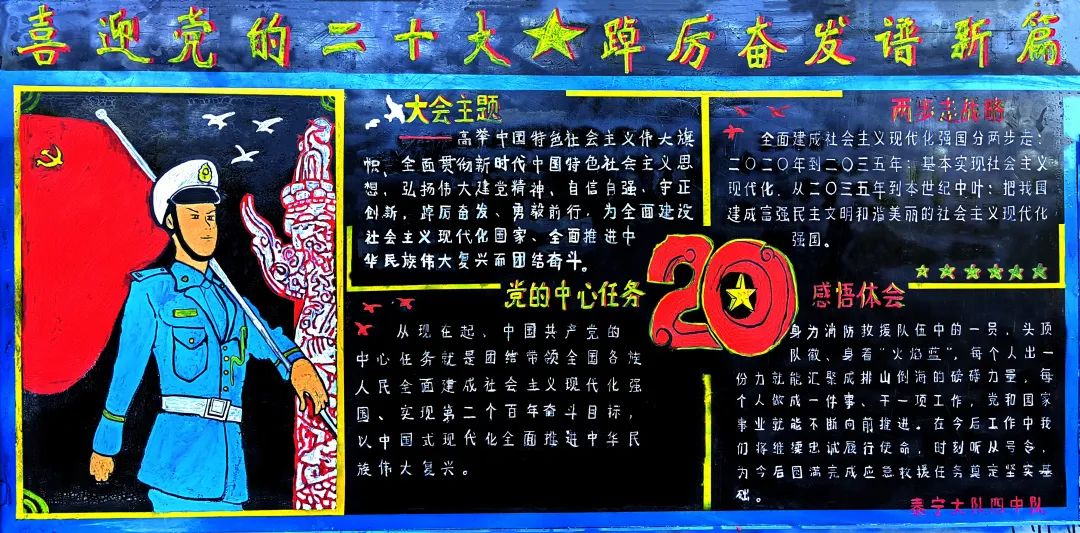 喜迎党的二十大★踔厉奋发谱新篇
大会主题
——高举中国特色社会主义伟大旗
帜、全面贯彻新时代中国特色社会主义思
想，弘扬伟大建党精神、自信自强、守正
创新，踔厉奋发、勇毅前行，为全面建设
社会主义现代化国家、全面推进中
华民族伟大复兴而团结奋斗。
两步走战略
全面建成社会主义现代化强国分两步走：
二〇二〇年到二〇三五年：基本实现社会主义
现代化，从二〇三五年到本世纪中叶：把我国
建成富强民主文明和谐美丽的社会主义现代化
强国。
20
党的中心任务
从现在起、中国共产党的
中心任务就是团结带领全国各族
人民全面建成社会主义现代化强
国、实现第二个百年奋斗目标，
以中国式现代化全面推进中华民
族伟大复兴。
感悟体会
身为消防救援队伍中的一员、头顶
队徽、身着“火焰蓝”，每个人出一
份力就能汇聚成排山倒海的磅礴力量，每
个人做成一件事、干一项工作，党和国家
事业就能不断向前推进。在今后工作中我
们将继续忠诚履行使命，时刻听从号令，
为今后圆满完成应急救援任务奠定坚实基
础。
泰宁大队四中队